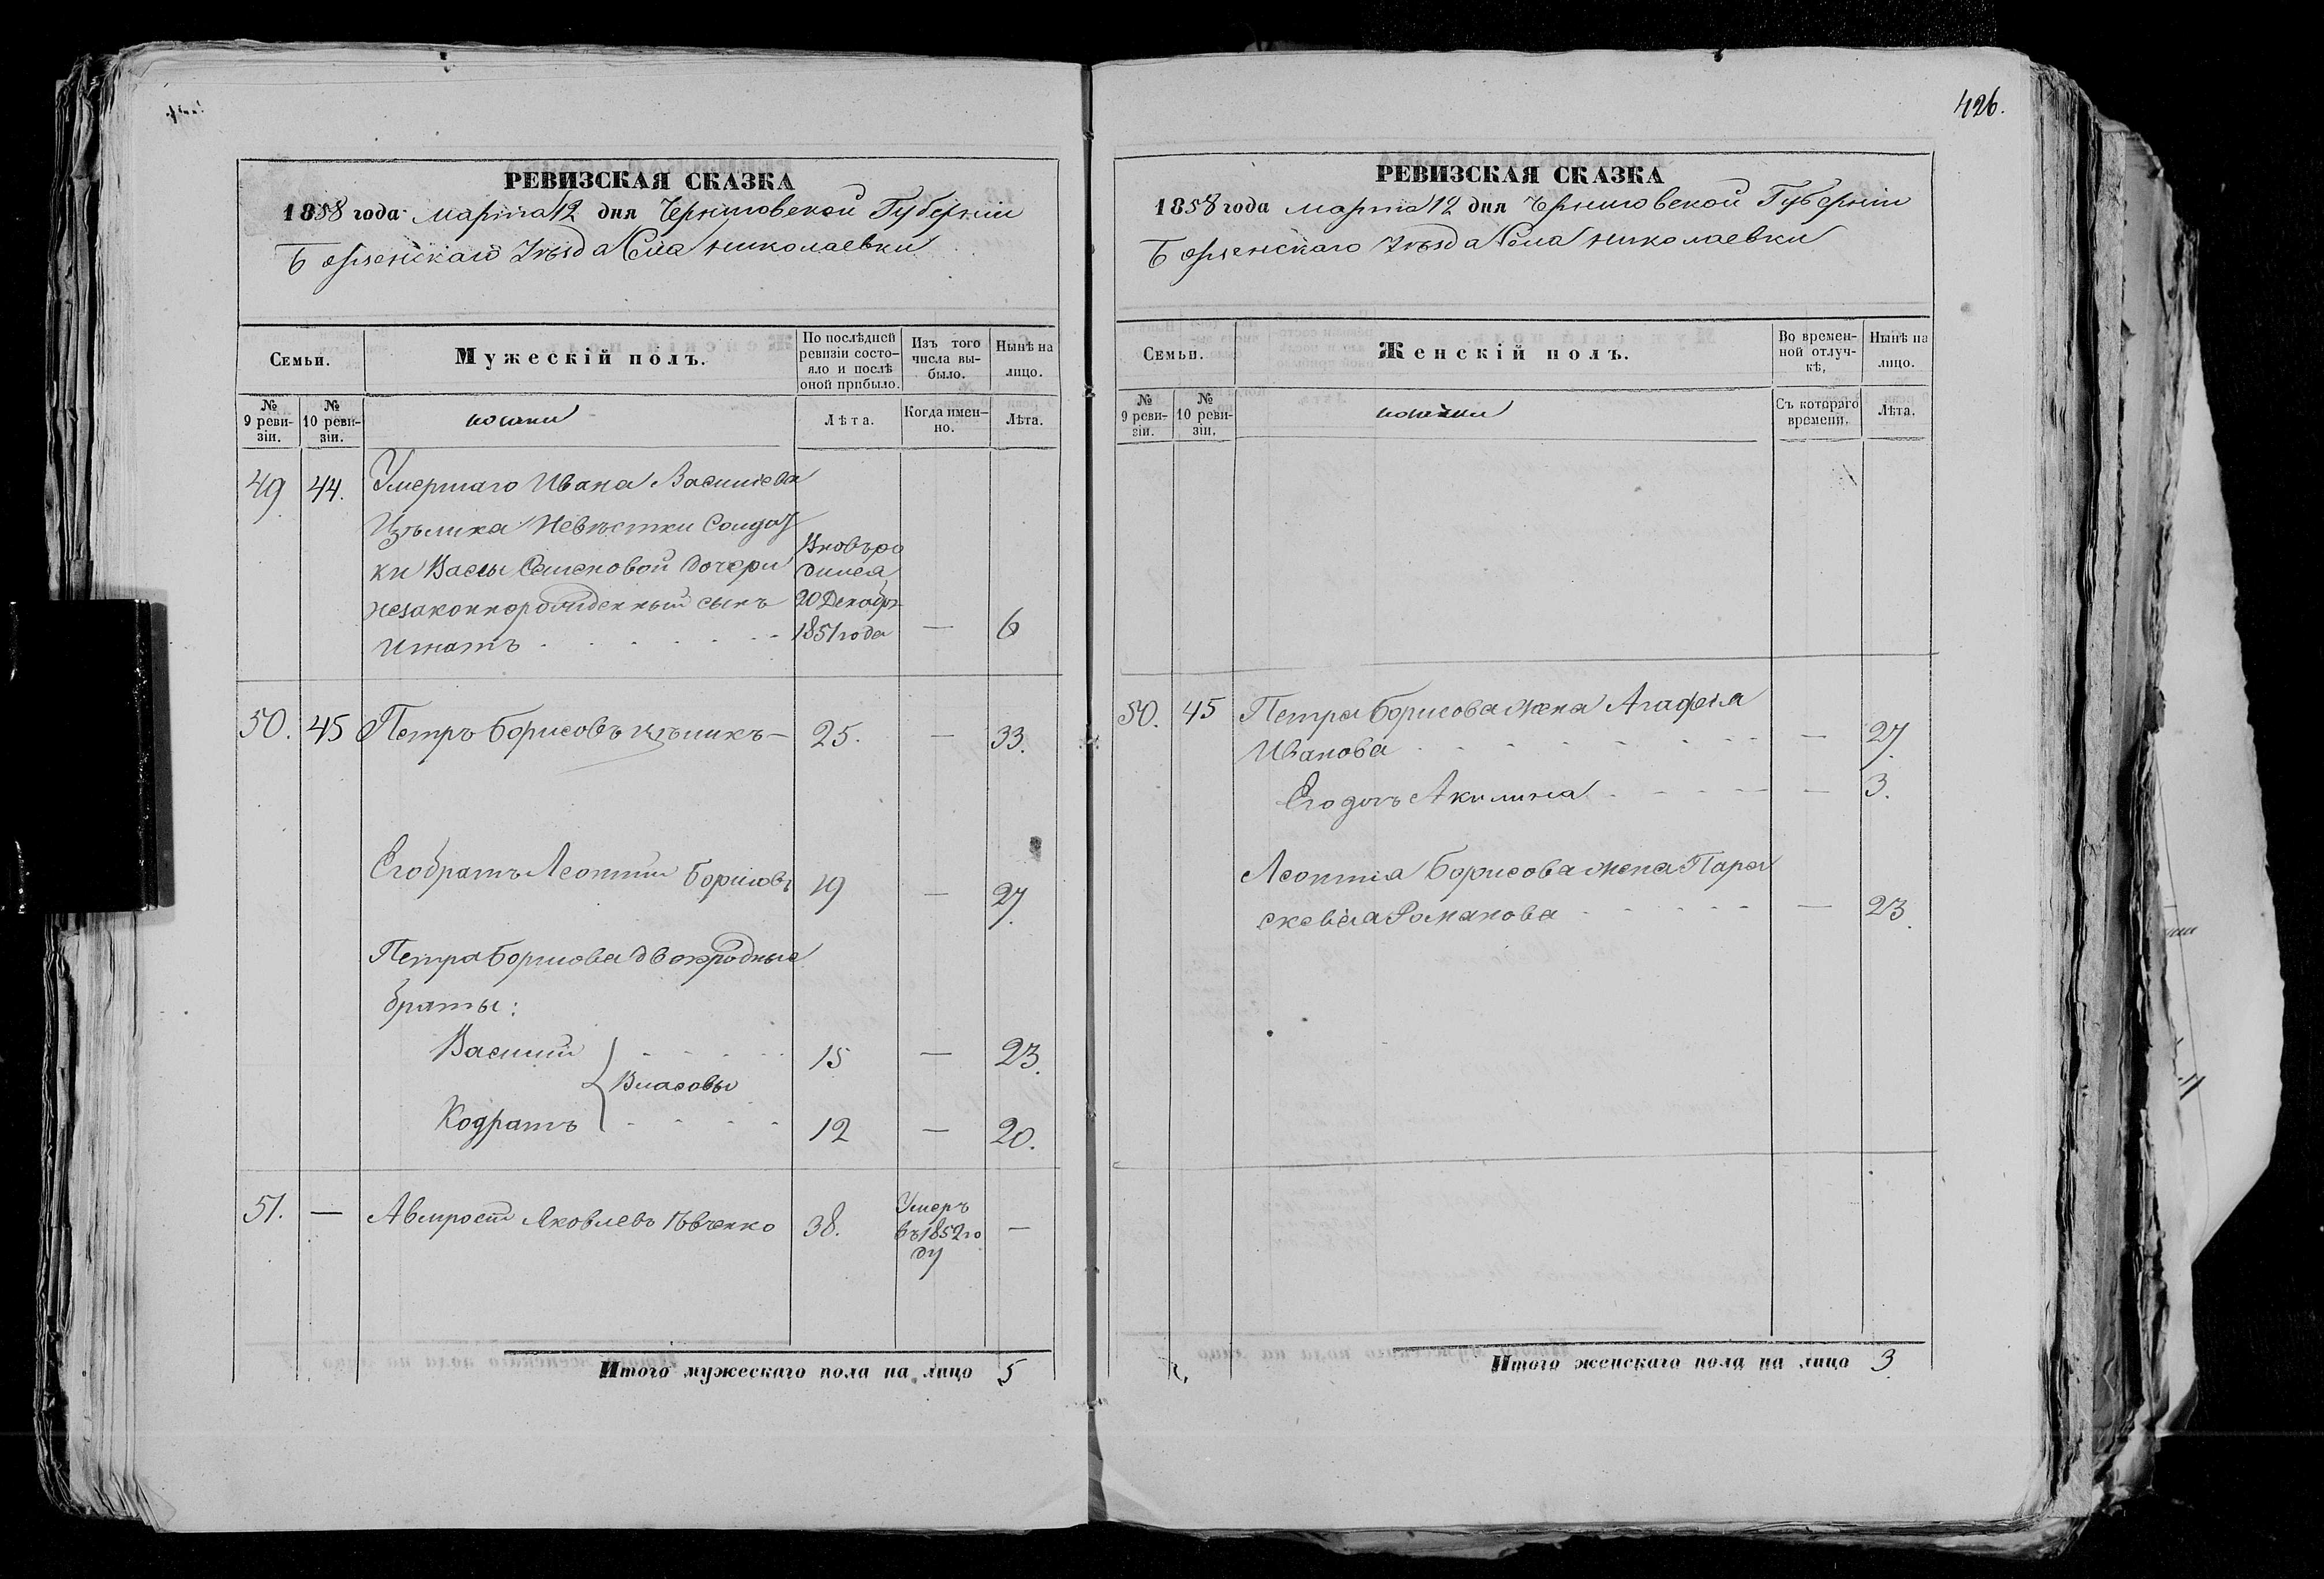 РЕВИЗСКАЯ СКАЗКА
1858 года марта 12 дня Черниговской Губерніи
Борзенскаго Уѣзда Села Николаевки
Семьи.
Мужескій полъ.
По послѣдней ревизіи состояло и послѣ оной прибыло.
Изъ того числа выбыло.
Нынѣ на лицо.
№ 9 ревизіи.
№ 10 ревизіи.
козаки
Лѣта.
Когда именно.
Лѣта.
49 44. Умершаго Ивана Васильева
Цѣлика Невѣстки Солдат
ки Васы Семеновой дочери
незаконнорожденный сынъ
Игнатъ
Вновь ро
дился
20 Декабр
1851 года — 6
50. 45 Петръ Борисовъ Цѣликъ — 25. — 33.
Его братъ Леонтий Борисовъ 19 — 27.
Петра Борисова двоюродные
браты:
Василий 15 — 23.
Власовы
Кодратъ 12 — 20.
51. — Амвросий Яковлевъ 38. Умеръ
въ 1852 го
ду —
Итого мужескаго пола на лицо 5
426.
РЕВИЗСКАЯ СКАЗКА
1858 года марта 12 дня Черниговской Губерніи
Борзенскаго Уѣзда Села Николаевки
Семьи.
Женскій полъ.
Во временной отлучкѣ,
Нынѣ на лицо.
№ 9 ревизіи.
№ 10 ревизіи.
козачки
Съ котораго времени.
Лѣта.
50. 45 Петра Борисова жена Агафія
Иванова — 27.
Его дочь Акилина — 3.
Леонтія Борисова жена Пара
скевія Романова — 23.
Итого женскаго пола на лицо 3.